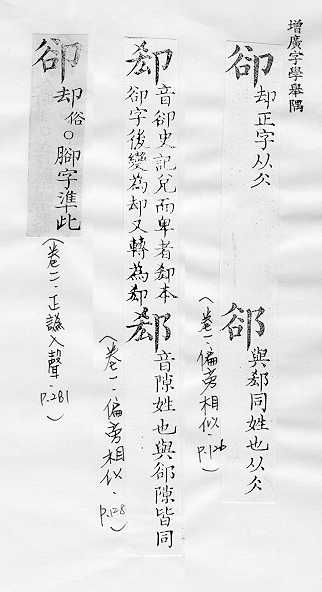 增廣字學舉隅
卻 却正字从仌
郤 與郄同姓也从仌
(卷一.偏旁相似.p.126)
音卻史記兌而卑者卻本
卻字後變為却又轉為
郄 音隙姓也與郤隙皆同
(卷一.偏旁相似.p.128)
卻 却俗○腳字準此
(卷二.正譌入聲.p.281)